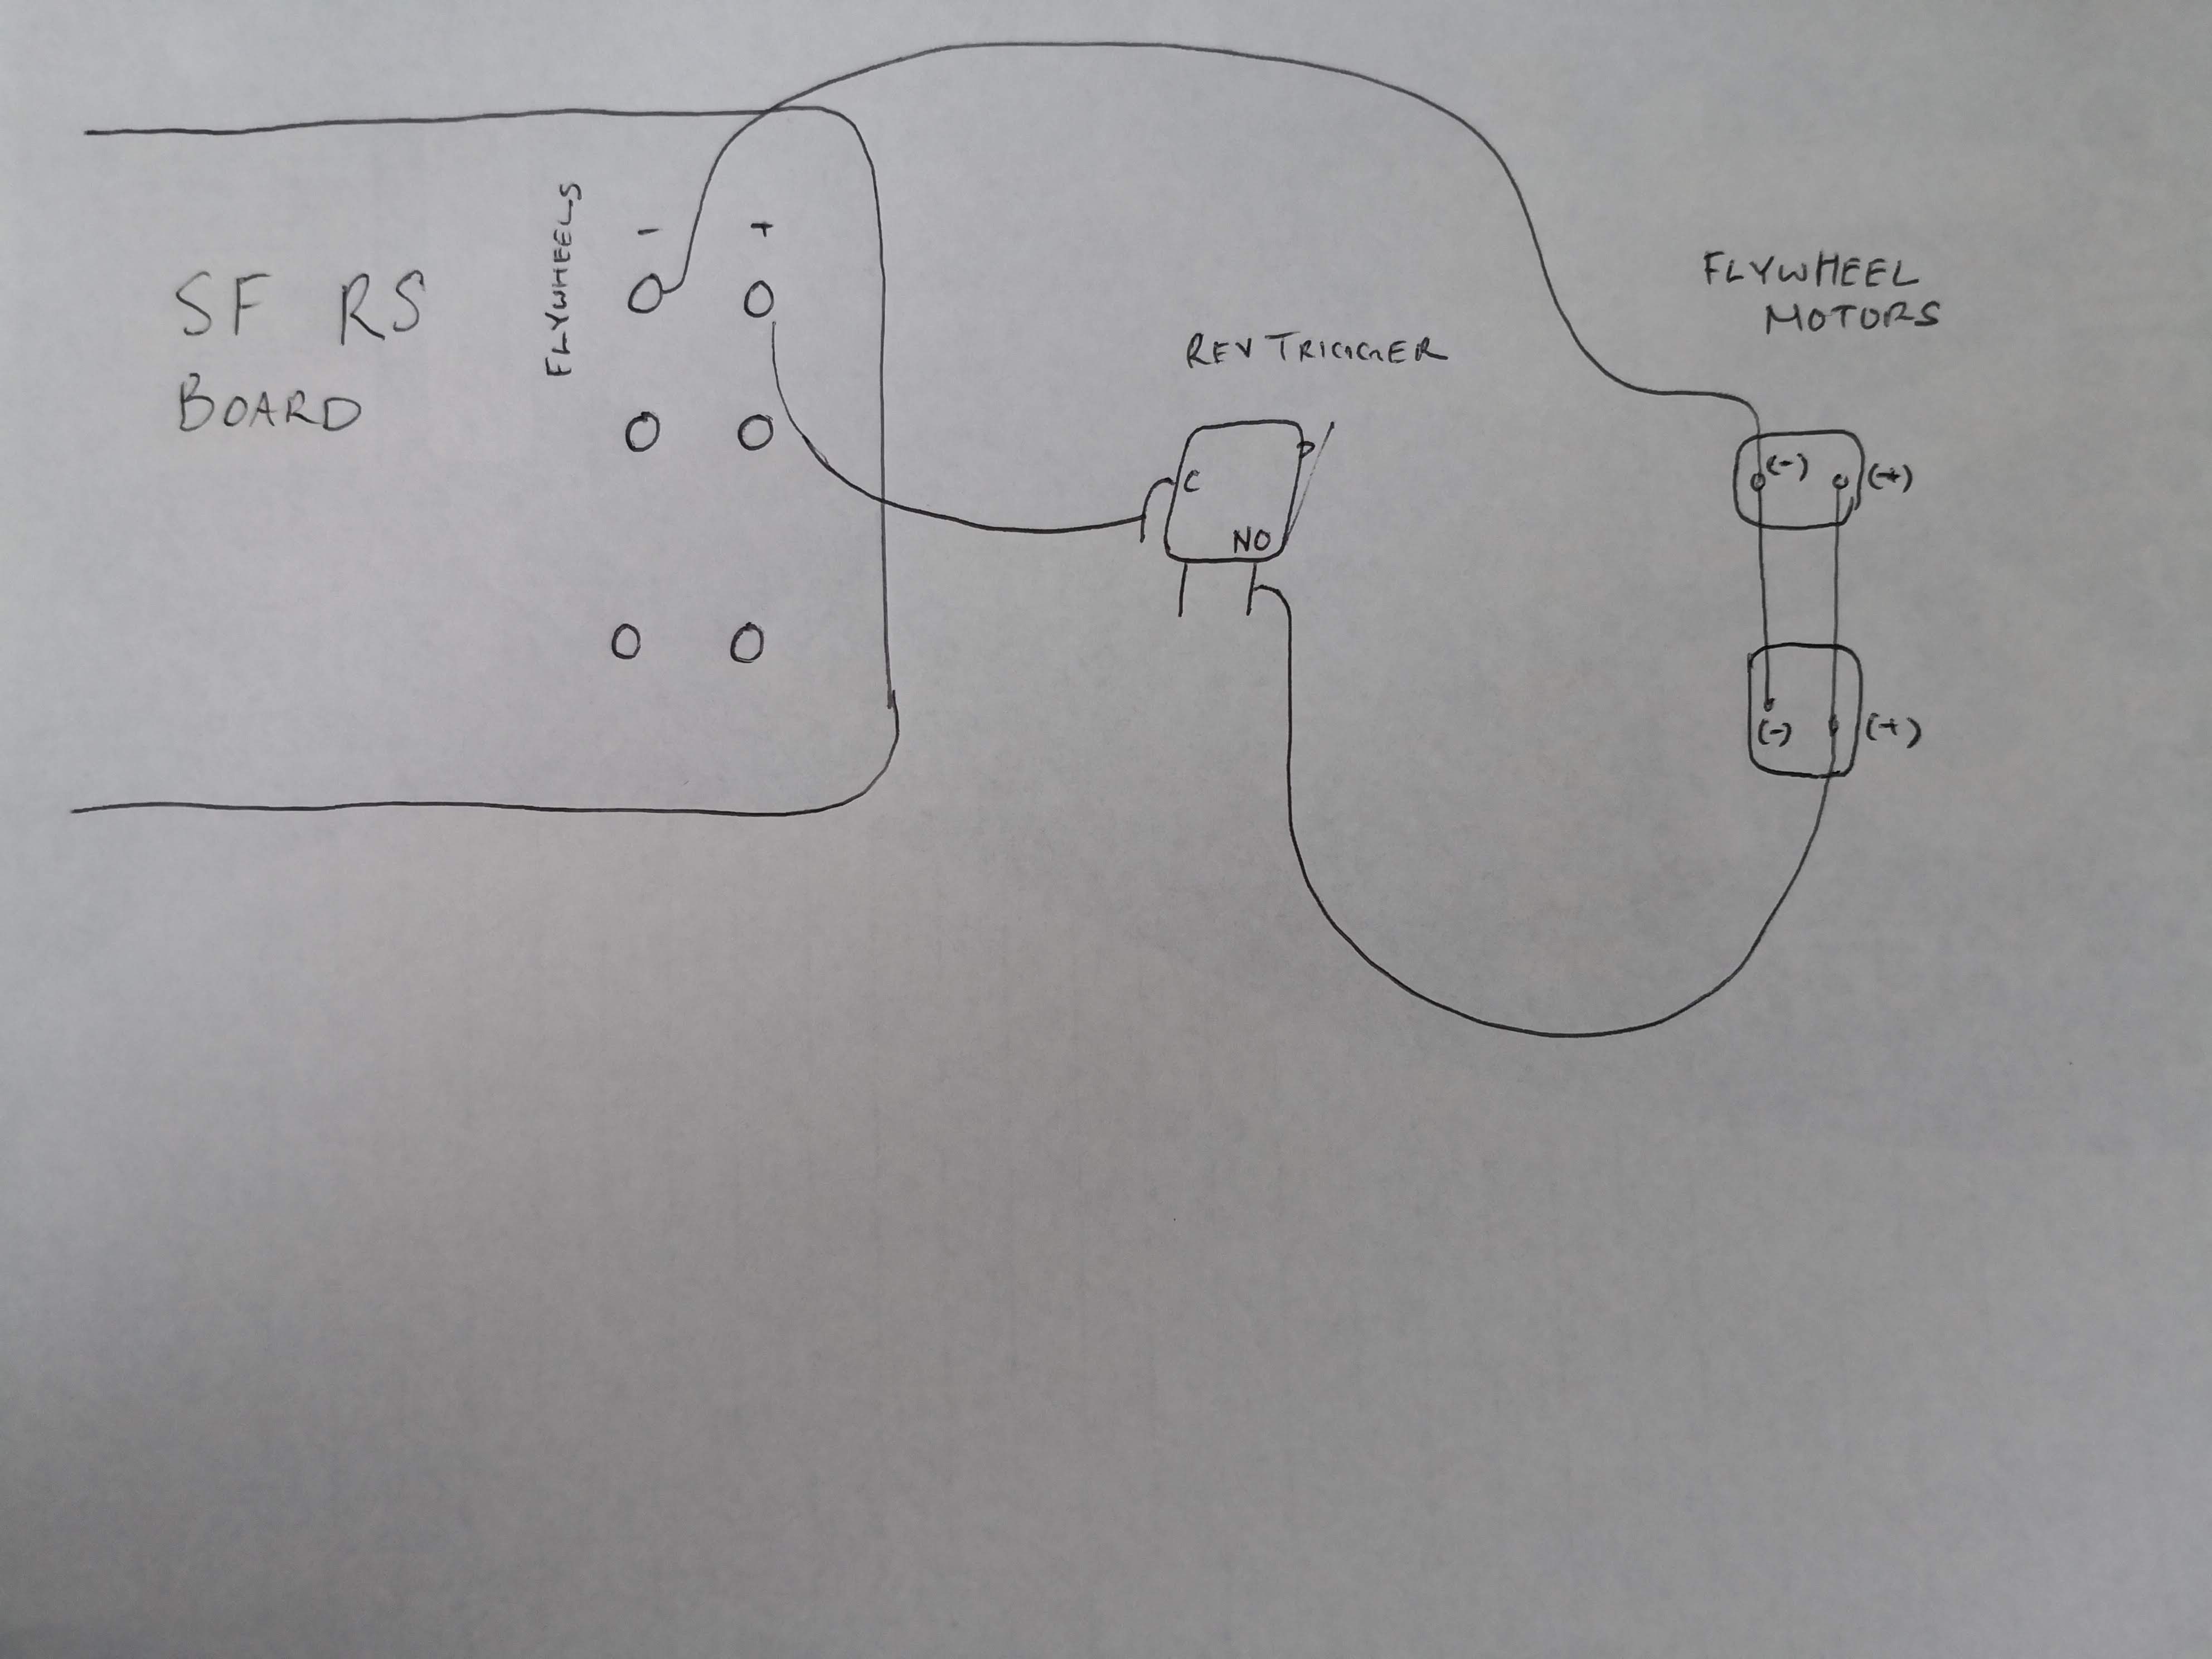 SF RS
BOARD
FLYWHEELS
- +
REV TRIGGER
C
NO
FLYWHEEL
MOTORS
(-) (+)
(-) (+)